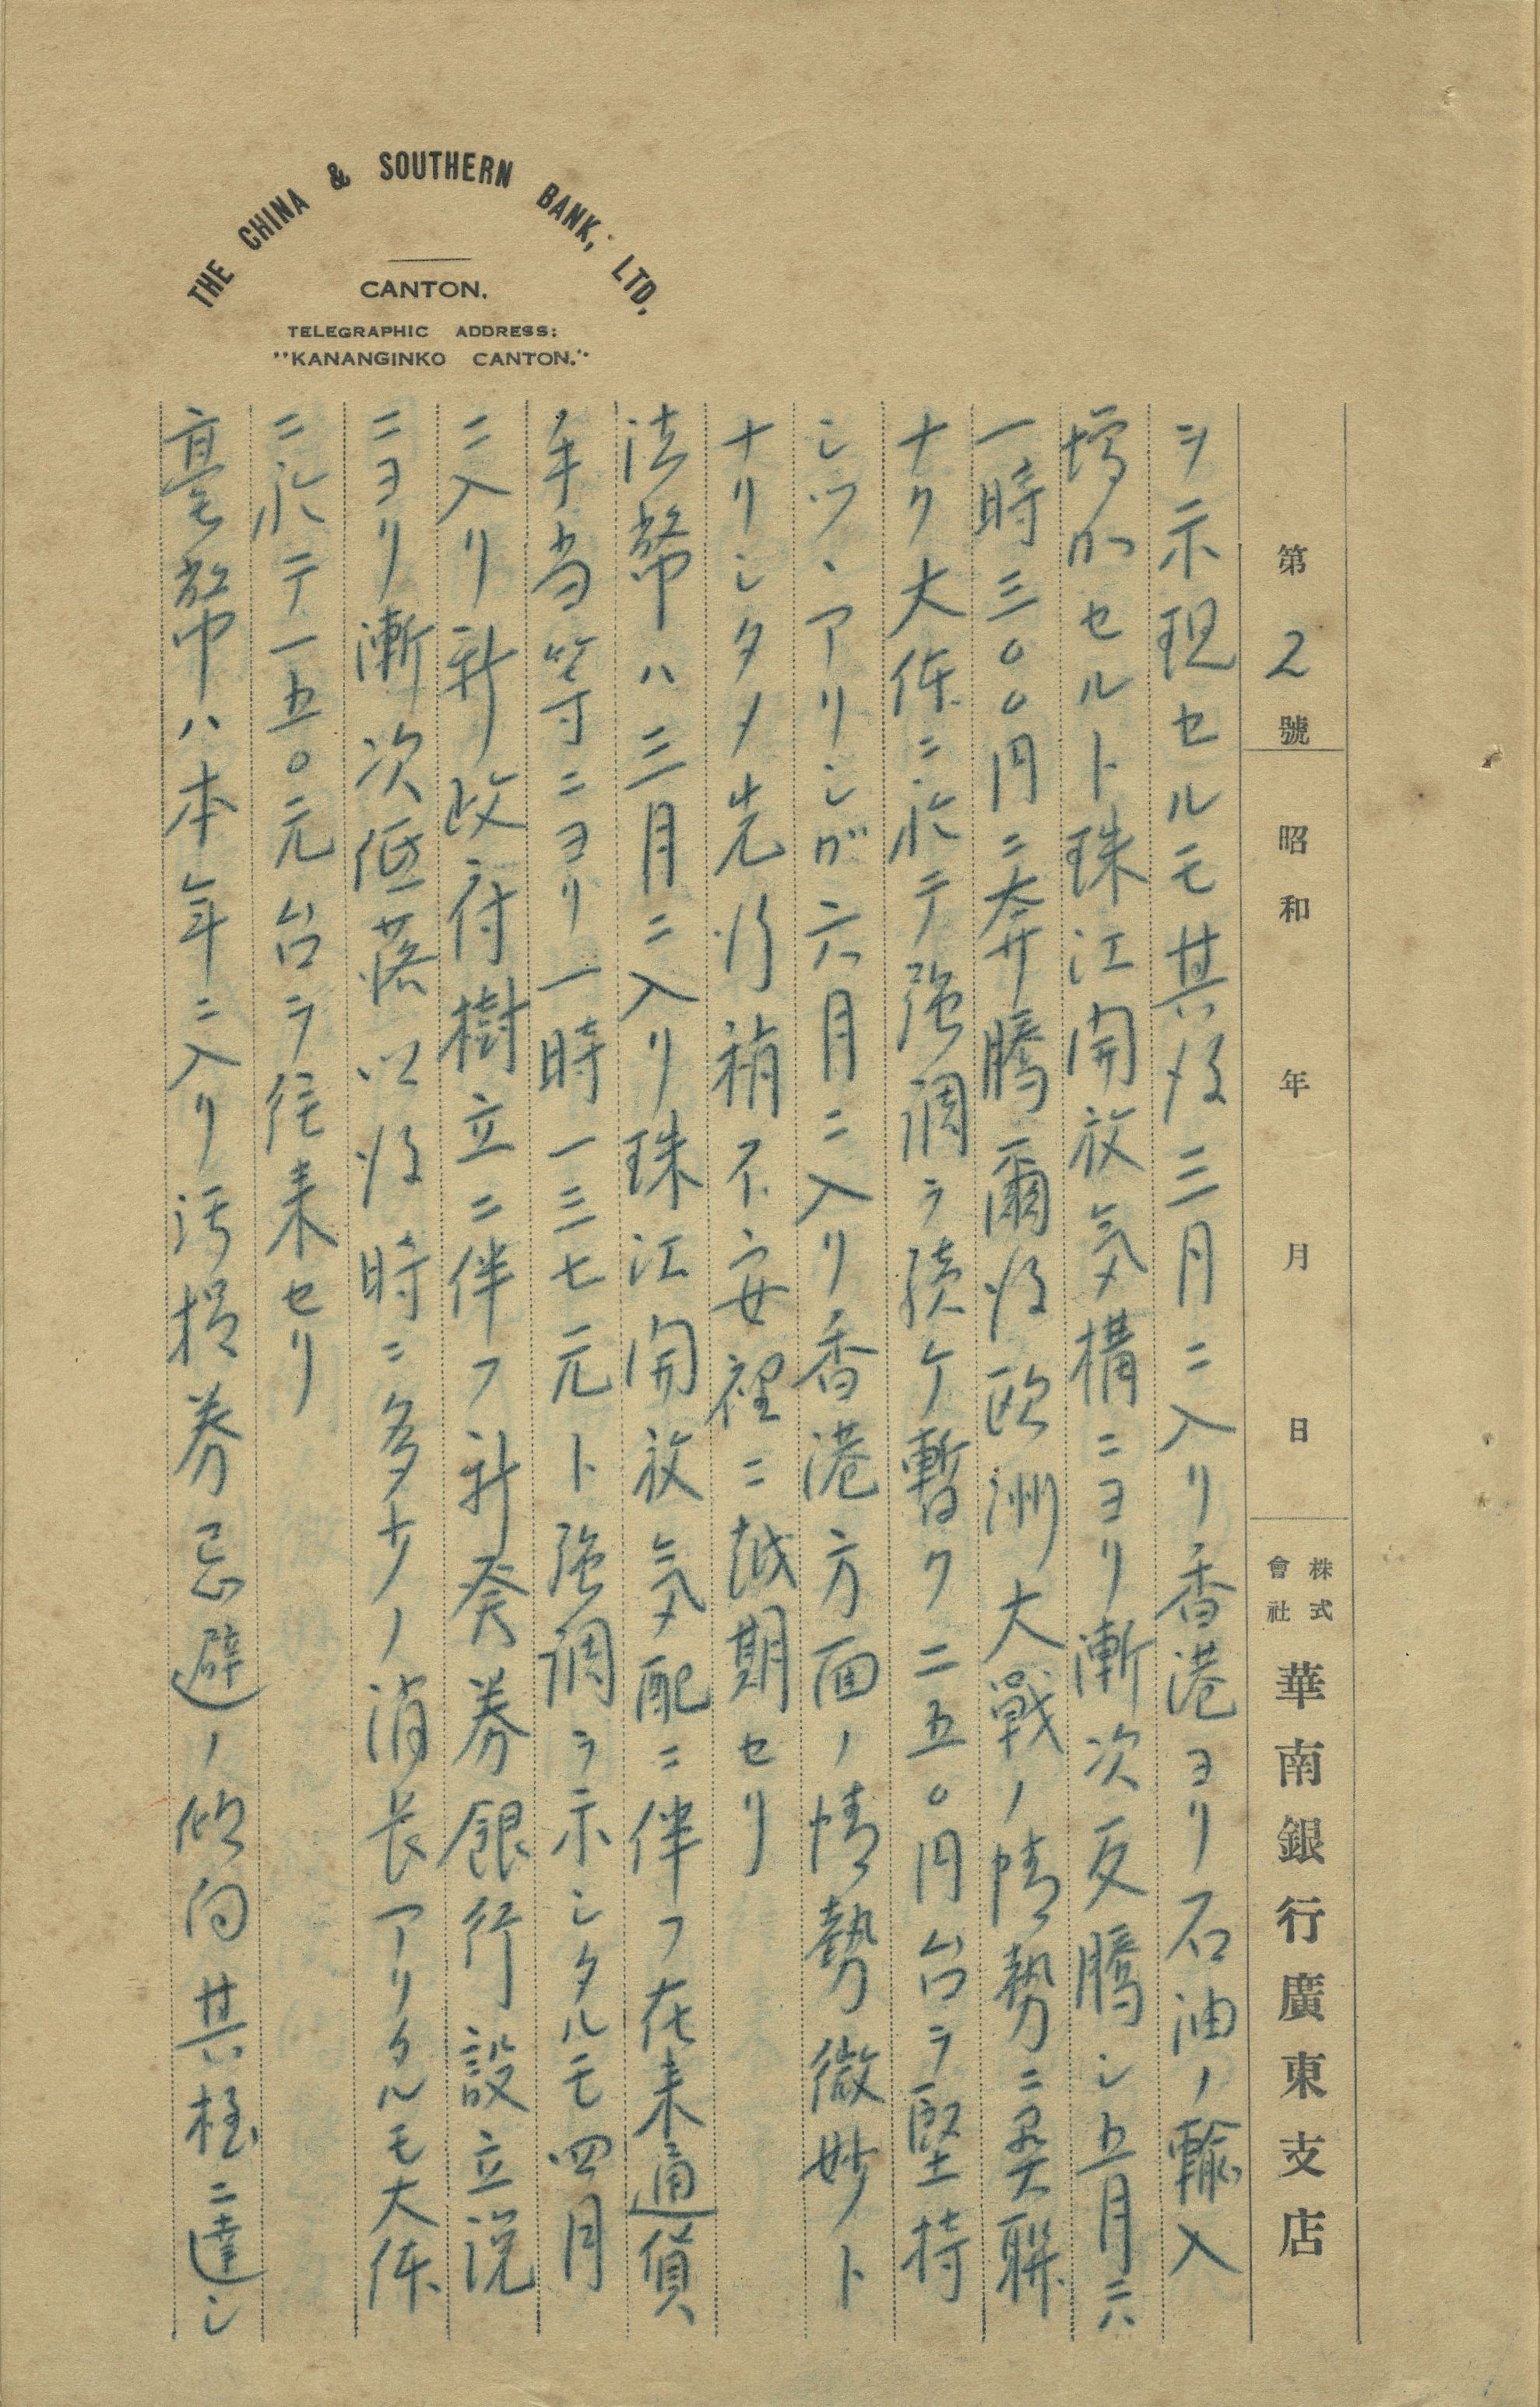 THE CHINA & SOUTHERN BANK, LTD.
CANTON.
TELEGRAPHIC ADDRESS:
"KANANGINKO CANTON."
第2號 昭和 年 月 日 株式會社 華南銀行廣東支店
ヲ示現セルモ其後三月ニ入リ香港ヨリ石油ノ輸入
増加セルト珠江開放気構ニヨリ漸次反騰シ五月ニハ
一時三〇〇円ニ奔騰爾後欧洲大戰ノ情勢ニ聯
ナク大体ニ於テ強調ヲ続ケ暫ク二五〇円台ヲ堅持
シツヽアリシガ六月ニ入リ香港方面ノ情勢微妙ト
ナリシタメ先行稍不安裡ニ越期セリ
法幣ハ三月ニ入リ珠江開放気配ニ伴フ在来通貨
手当等ニヨリ一時一三七元ト強調ヲ示シタルモ四月
ニ入リ新政府樹立ニ伴フ新発券銀行設立説
ニヨリ漸次低落以後時ニ多少ノ消長アリタルモ大体
ニ於テ一五〇元台ヲ往来セリ
毫幣ハ本年ニ入リ汚損券忌避ノ傾向其極ニ達シ